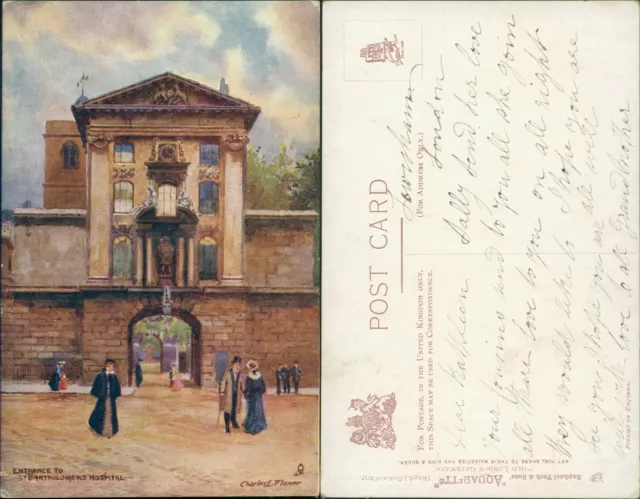 ENTRANCE TO
ST BARTHOLOMEWS HOSPITAL
Charles E. Flower
POST CARD
(FOR ADDRESS ONLY.)
FOR POSTAGE IN THE UNITED KINGDOM ONLY,
THIS SPACE MAY BE USED FOR CORRESPONDENCE.
London
Dear Kathleen
Sally send her love
Your cousins send to you all she
all their love to you on all right
they would like to I hope you are
see you all are all well
love to all Grandmother
Raphael Tuck & Sons' "AQUARETTE" (Regd.) Postcard
"OLD LONDON GATEWAYS."
ART PUBLISHERS TO THEIR MAJESTIES THE KING & QUEEN.
Printed in England.